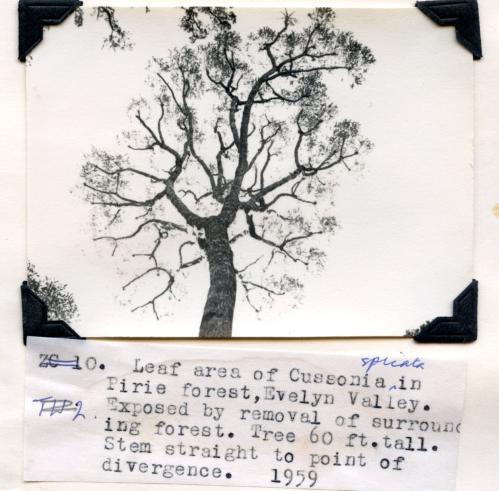 ZG 10. Leaf area of Cussonia spicata in
Pirie forest,Evelyn Valley.
Exposed by removal of surround
ing forest. Tree 60 ft.tall.
Stem straight to point of
divergence. 1959